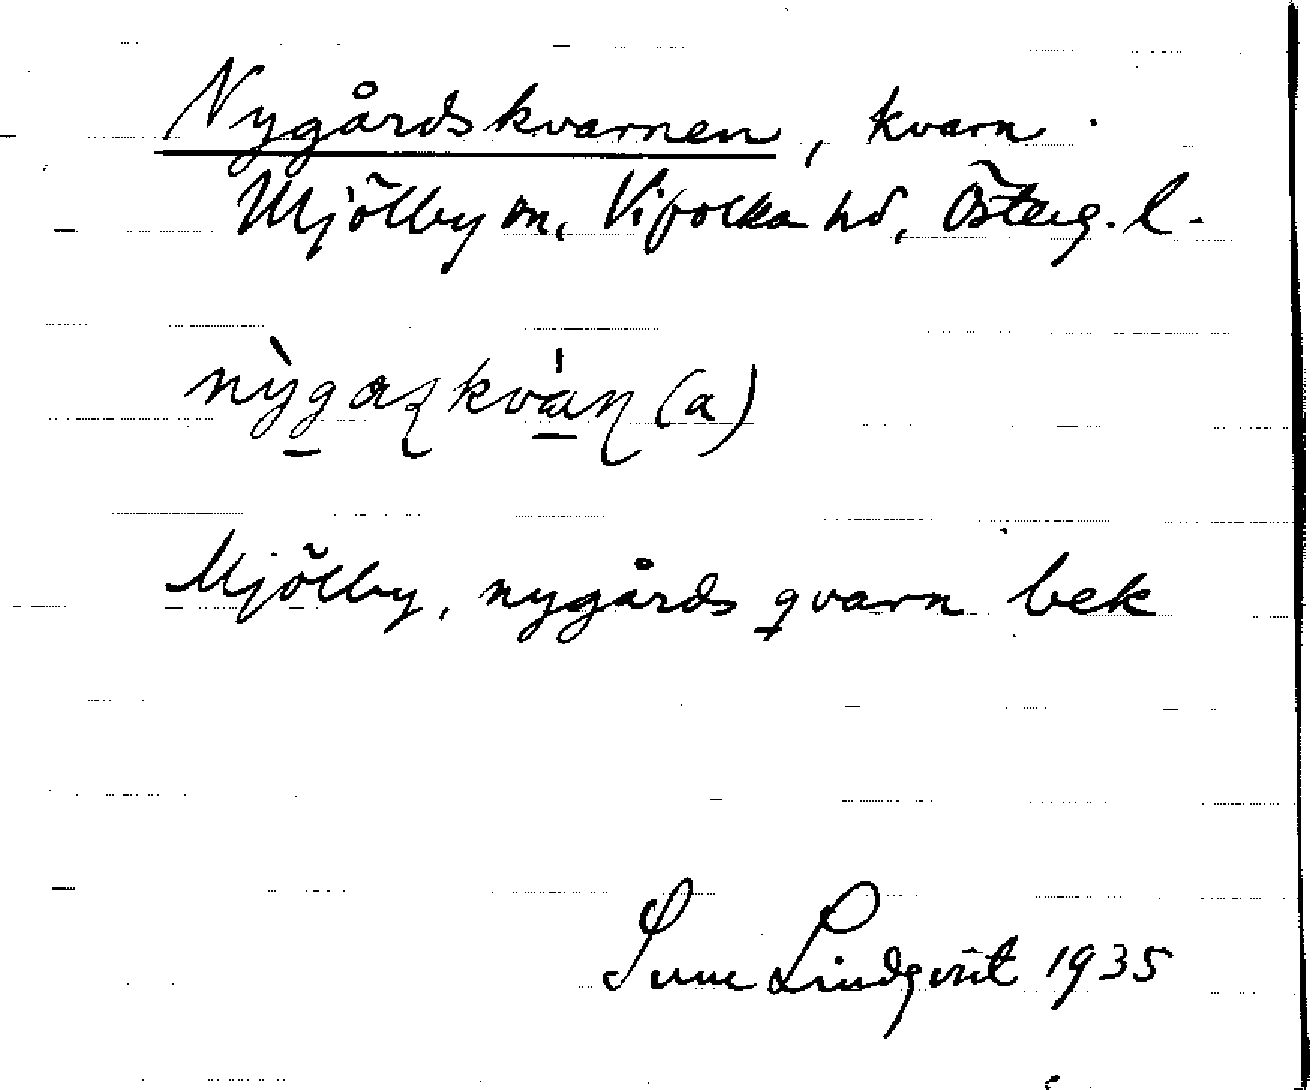 Nygårdskvarnen, kvarn.
Mjölby sn, Vifolka hd, Österg. l.
nỳgaʂkvàɳ (a)
Mjölby, nygårds qvarn bek
Sune Lindqvist 1935